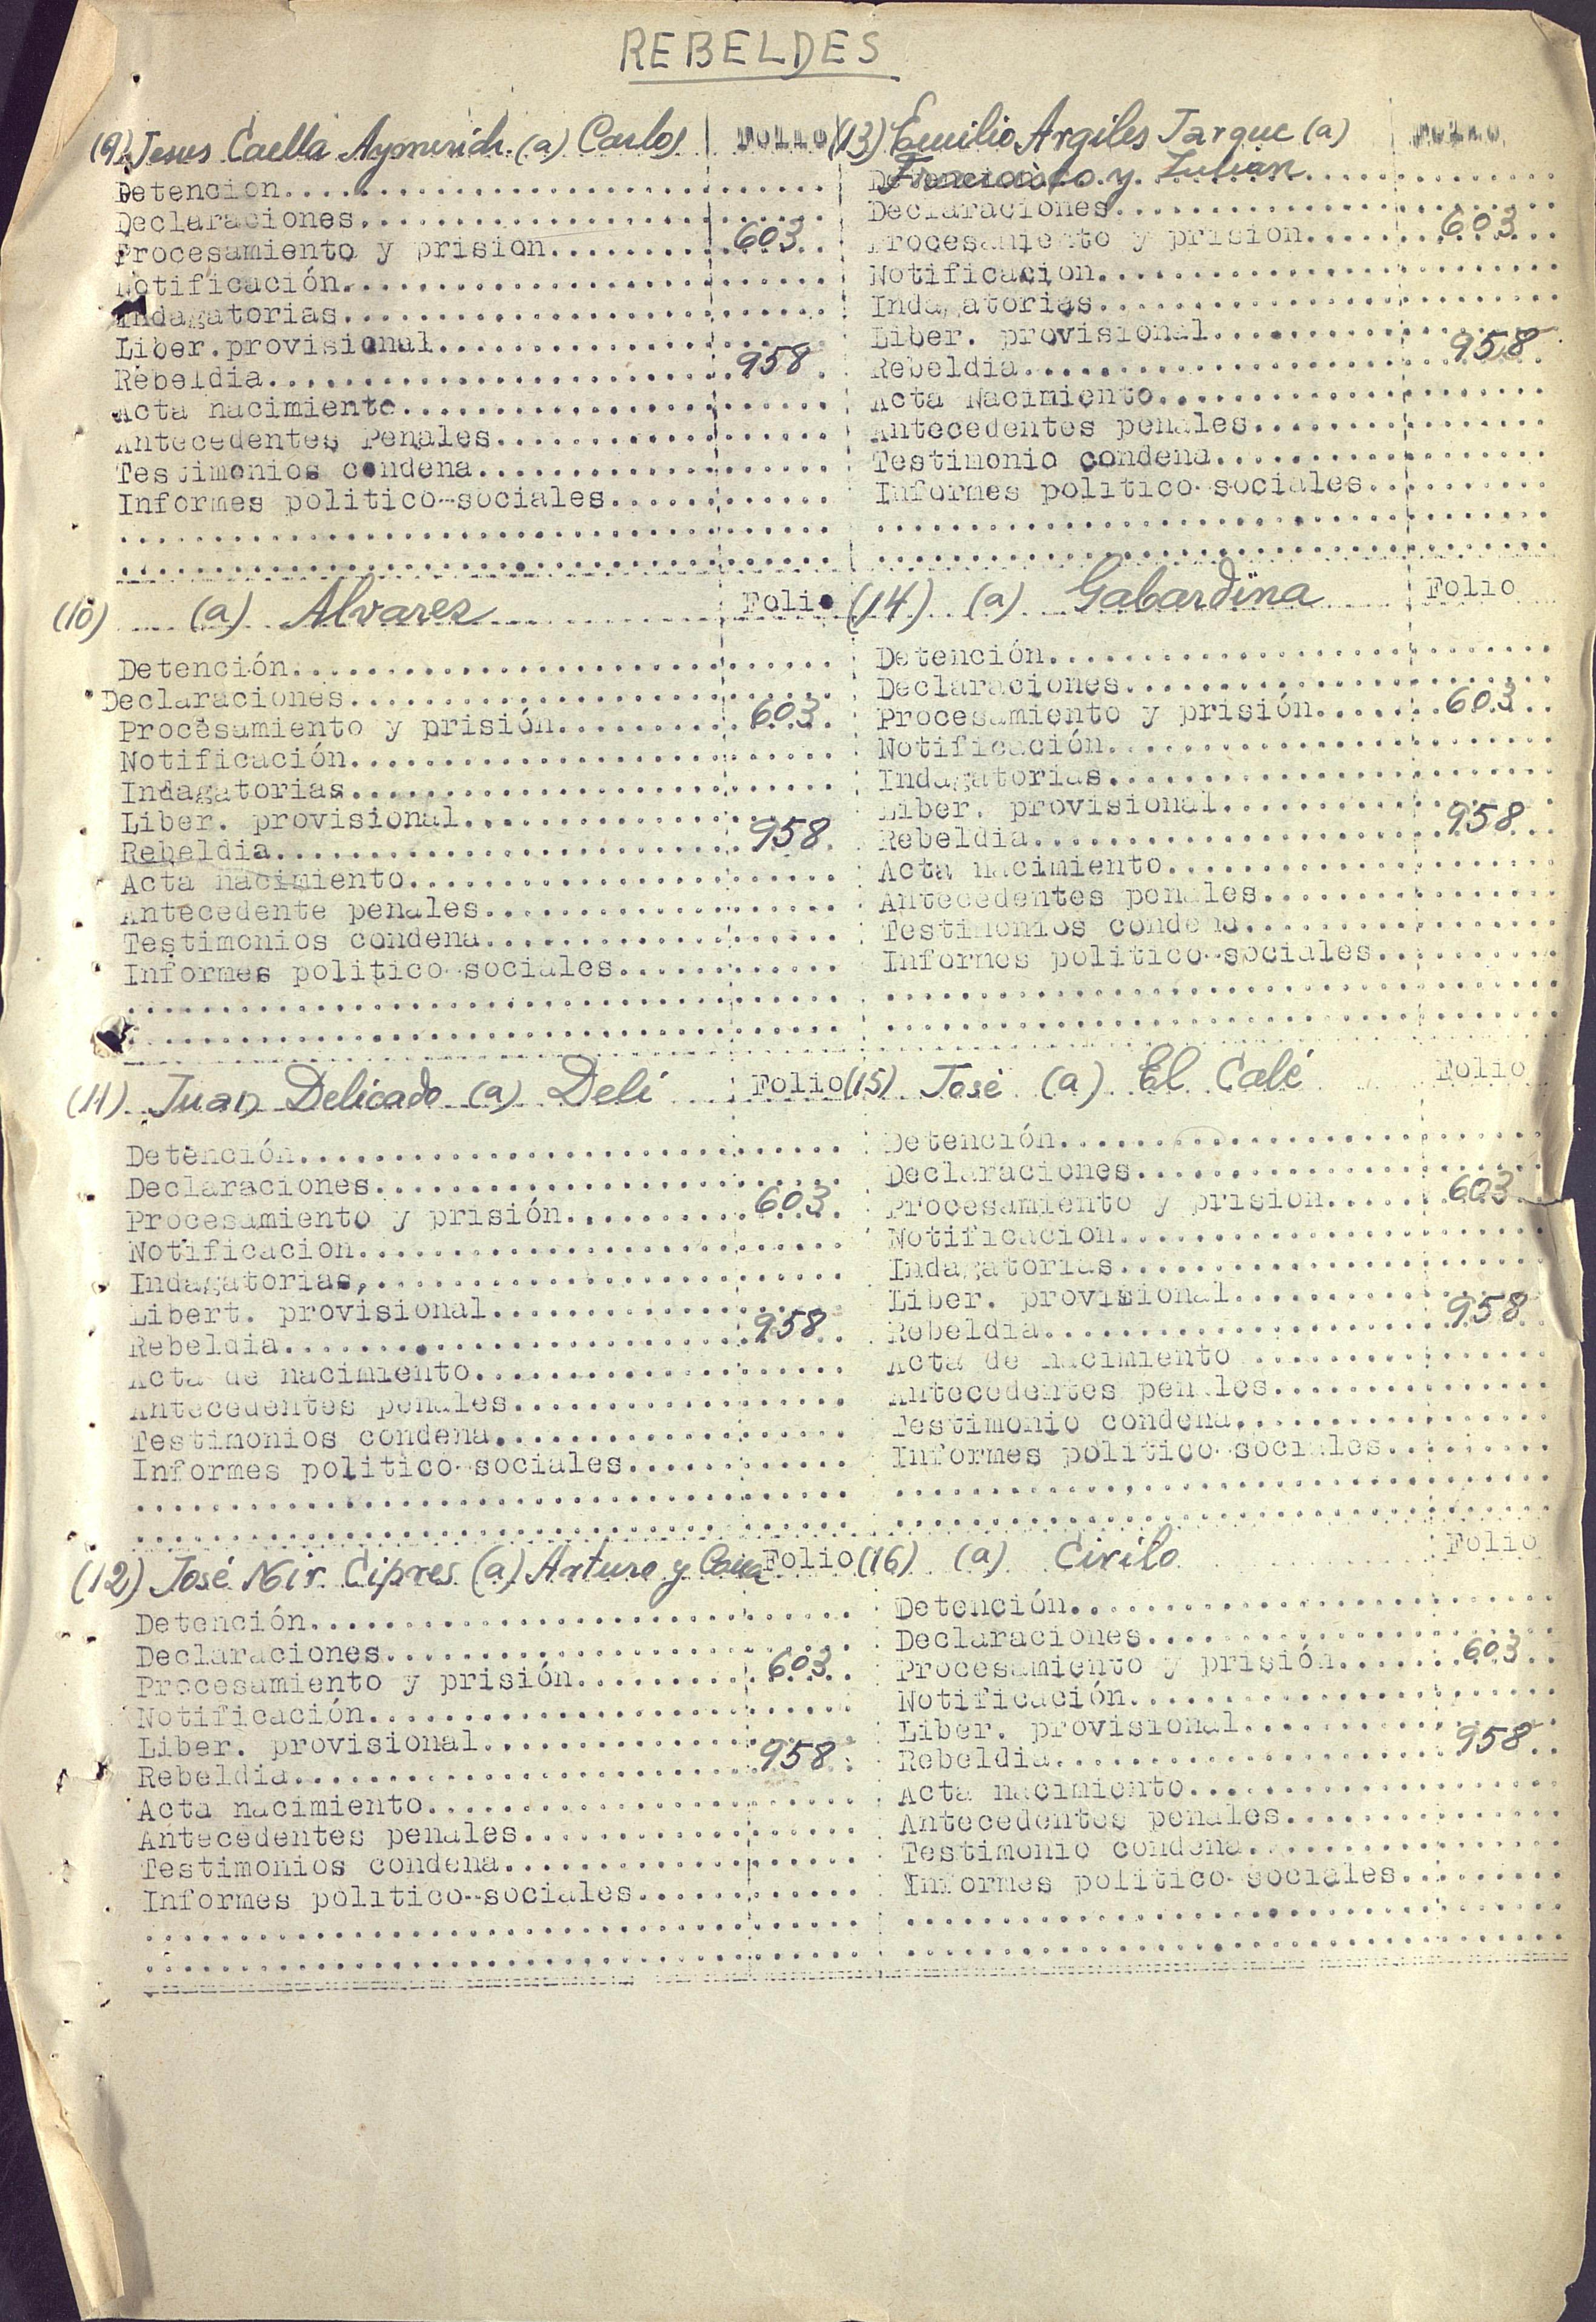 REBELDES
(9) Jesus Caella Aymerich (a) Carlos Folio
Detencion
Declaraciones
Procesamiento y prision 603
Notificación
Indagatorias
Liber. provisional
Rebeldia 958
Acta nacimiento
Antecedentes Penales
Testimonios condena
Informes politico-sociales
(10) (a) Alvarez Folio
Detención
Declaraciones
Procesamiento y prisión 603
Notificación
Indagatorias
Liber. provisional
Rebeldia 958
Acta nacimiento
Antecedente penales
Testimonios condena
Informes politico-sociales
(11) Juan Delicado (a) Deli Folio
Detención
Declaraciones
Procesamiento y prisión 603
Notificacion
Indagatorias,
Libert. provisional
Rebeldia 958
Acta de nacimiento
Antecedentes penales
Testimonios condena
Informes politico-sociales
(12) José Mir Cipres (a) Arturo y Folio
Detención
Declaraciones
Procesamiento y prisión 603
Notificación
Liber. provisional
Rebeldia 958
Acta nacimiento
Antecedentes penales
Testimonios condena
Informes politico-sociales
(13) Emilio Argiles Jarque (a) Folio
y Julian
Declaraciones
Procesamiento y prision 603
Notificacion
Indagatorias
Liber. provisional
Rebeldia 958
Acta Nacimiento
Antecedentes penales
Testimonio condena
Informes politico-sociales
(14) (a) Gabardina Folio
Detención
Declaraciones
Procesamiento y prisión 603
Notificación
Indagatorias
Liber. provisional
Rebeldia 958
Acta nacimiento
Antecedentes penales
Testimonios condena
Informes politico-sociales
(15) José (a) El Calé Folio
Detención
Declaraciones
Procesamiento y prision 603
Notificacion
Indagatorias
Liber. provisional
Rebeldia 958
Acta de nacimiento
Antecedentes penales
Testimonio condena
Informes politico-sociales
(16) (a) Cirilo Folio
Detención
Declaraciones
Procesamiento y prisión 603
Notificación
Liber. provisional
Rebeldia 958
Acta nacimiento
Antecedentes penales
Testimonio condena
Informes politico-sociales